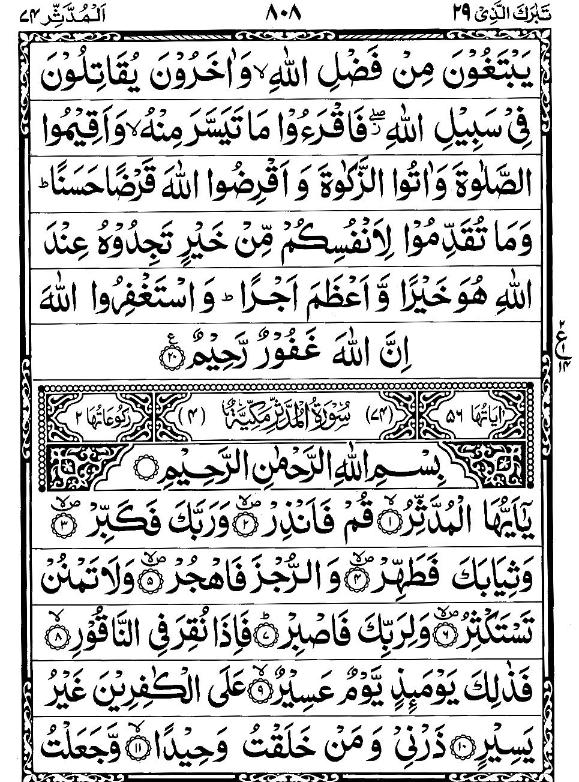 تَبٰرَكَ الَّذِىْ ٢٩ ٨٠٨ اَلْمُدَّثِّر ٧٤
يَبْتَغُوْنَ مِنْ فَضْلِ اللّٰهِ ۙ وَاٰخَرُوْنَ يُقَاتِلُوْنَ
فِىْ سَبِيْلِ اللّٰهِ ۖ ز فَاقْرَءُوْا مَا تَيَسَّرَ مِنْهُ ۙ وَاَقِيْمُوا
الصَّلٰوةَ وَاٰتُوا الزَّكٰوةَ وَ اَقْرِضُوا اللّٰهَ قَرْضًا حَسَنًا ؕ
وَمَا تُقَدِّمُوْا لِاَنْفُسِكُمْ مِّنْ خَيْرٍ تَجِدُوْهُ عِنْدَ
اللّٰهِ هُوَ خَيْرًا وَّ اَعْظَمَ اَجْرًا ؕ وَ اسْتَغْفِرُوا اللّٰهَ
اِنَّ اللّٰهَ غَفُوْرٌ رَّحِيْمٌ ۧ ٢٠
٢ ع ١ ١٤
اٰيَاتُهَا ٥٦ (٧٤) سُوْرَةُ الْمُدَّثِّرِ مَكِّيَّةٌ (٤) رُكُوْعَاتُهَا ٢
بِسْمِ اللّٰهِ الرَّحْمٰنِ الرَّحِيْمِ
يٰۤاَيُّهَا الْمُدَّثِّرُ ۙ ١ قُمْ فَاَنْذِرْ ۪ۙ ٢ وَرَبَّكَ فَكَبِّرْ ۪ۙ ٣
وَثِيَابَكَ فَطَهِّرْ ۪ۙ ٤ وَالرُّجْزَ فَاهْجُرْ ۪ۙ ٥ وَلَا تَمْنُنْ
تَسْتَكْثِرُ ۪ۙ ٦ وَلِرَبِّكَ فَاصْبِرْ ؕ ٧ فَاِذَا نُقِرَ فِى النَّاقُوْرِ ۙ ٨
فَذٰلِكَ يَوْمَئِذٍ يَّوْمٌ عَسِيْرٌ ۙ ٩ عَلَى الْكٰفِرِيْنَ غَيْرُ
يَسِيْرٍ ١٠ ذَرْنِىْ وَ مَنْ خَلَقْتُ وَحِيْدًا ۙ ١١ وَّجَعَلْتُ